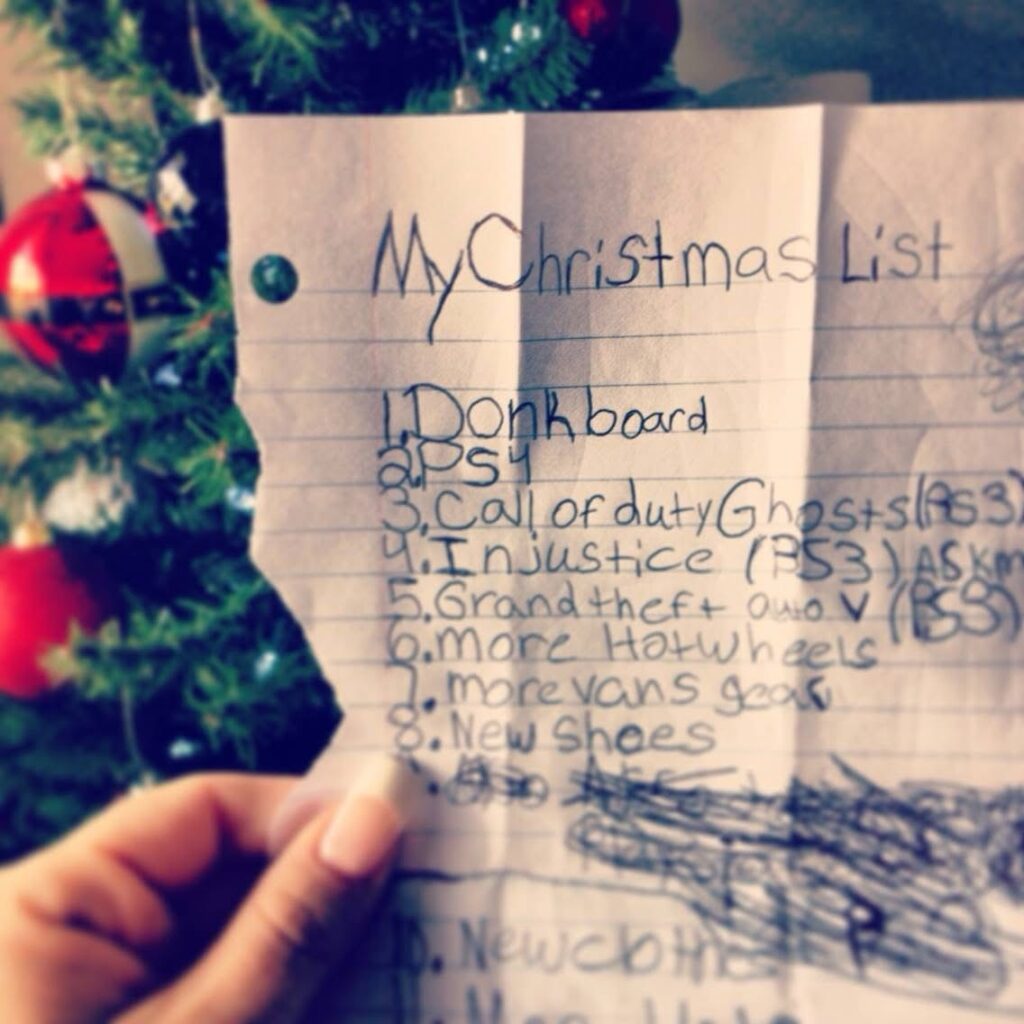 My Christmas List
1. Donk board
2. Ps4
3. Call of duty Ghosts (PS3)
4. Injustice (PS3) ASK m
5. Grand theft auto V (PS3)
6. more Hotwheels
7. more vans gear
8. New Shoes
10. New clothes